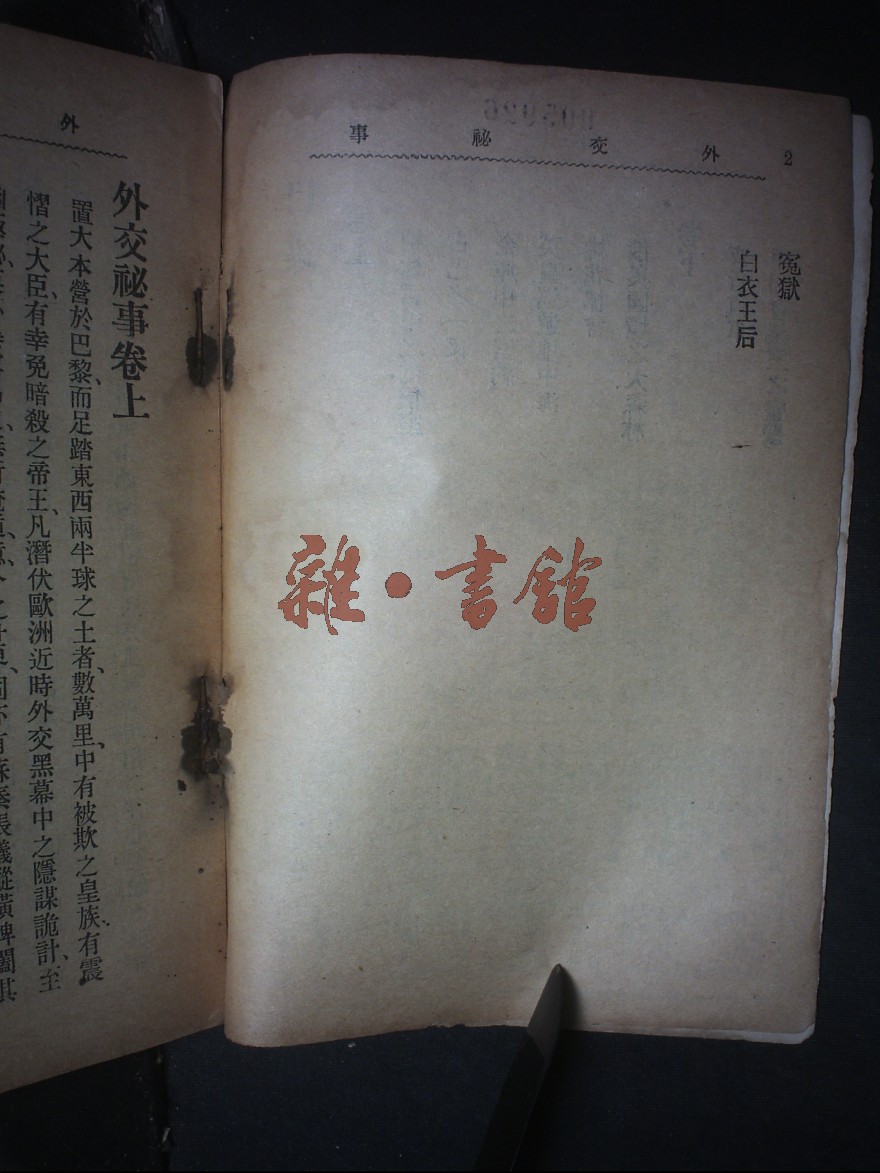 2 外交祕事
冤獄
白衣王后
雜·書館
外
外交祕事卷上
置大本營於巴黎、而足踏東西兩半球之土者數萬里、中有被欺之皇族、有震
慴之大臣、有幸免暗殺之帝王、凡潛伏歐洲近時外交黑幕中之隱謀詭計、至